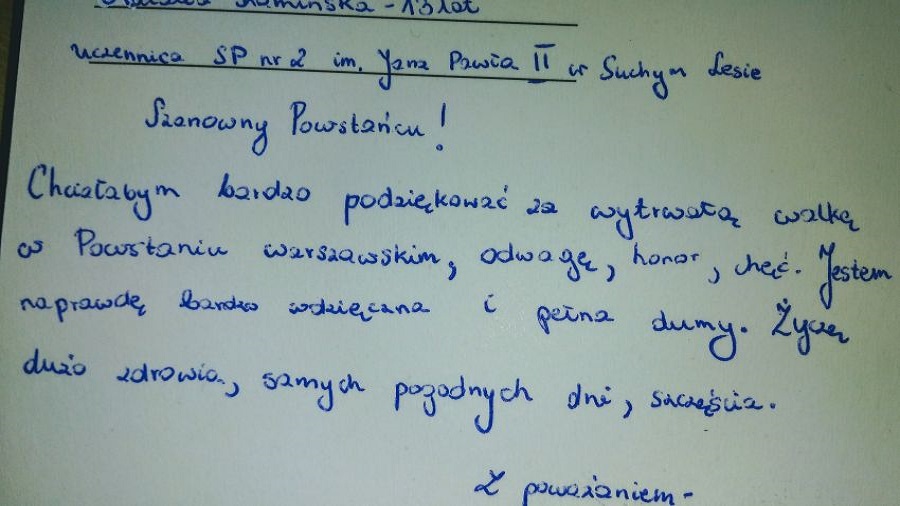 Kamińska - 13 lat
uczennica SP nr 2 im. Jana Pawła II w Suchym Lesie
Szanowny Powstańcu!
Chciałabym bardzo podziękować za wytrwałą walkę
w Powstaniu warszawskim, odwagę, honor, chęć. Jestem
naprawdę bardzo wdzięczna i pełna dumy. Życzę
dużo zdrowia, samych pogodnych dni, szczęścia.
Z poważaniem-